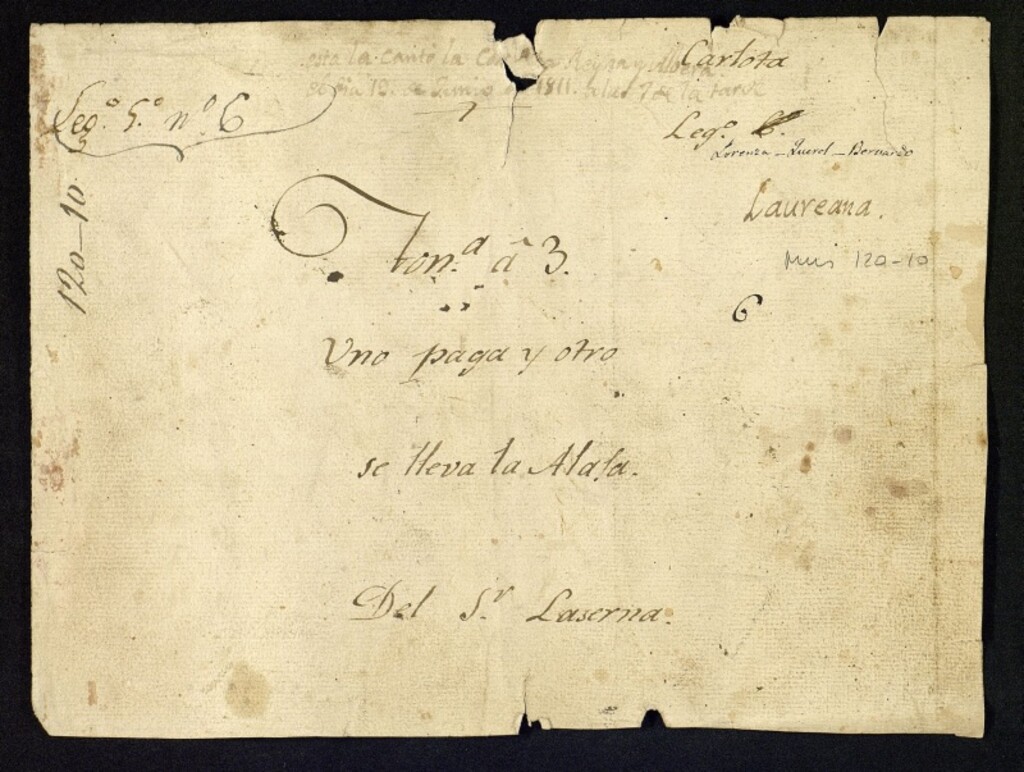 esta la canto la Reyna y
el dia 12. de Junio de 1811. a las 7 de la tarde
Carlota
Leg.º 5.º nº 6
Leg.º 6.
Lorenza - Querol - Bernardo
Laureana.
120-10
Mus 120-10
Ton.ª â 3.
6
Vno paga y otro
se lleva la Alaja.
Del S.r Laserna.